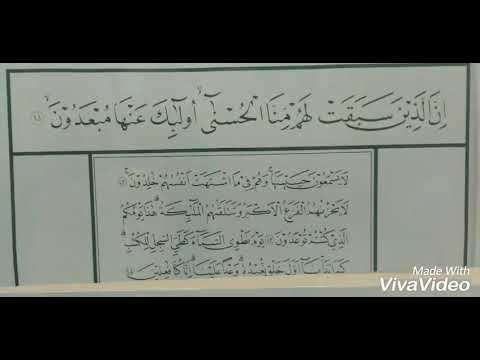 اِنَّ الَّذِيْنَ سَبَقَتْ لَهُمْ مِنَّا الْحُسْنٰٓىۙ اُولٰٓئِكَ عَنْهَا مُبْعَدُوْنَۙ
لَا يَسْمَعُوْنَ حَسِيْسَهَاۚ وَهُمْ فِيْ مَا اشْتَهَتْ اَنْفُسُهُمْ خٰلِدُوْنَۚ
لَا يَحْزُنُهُمُ الْفَزَعُ الْاَكْبَرُ وَتَتَلَقّٰىهُمُ الْمَلٰٓئِكَةُۗ هٰذَا يَوْمُكُمُ
الَّذِيْ كُنْتُمْ تُوْعَدُوْنَ يَوْمَ نَطْوِي السَّمَٓاءَ كَطَيِّ السِّجِلِّ لِلْكُتُبِۗ
كَمَا بَدَأْنَٓا اَوَّلَ خَلْقٍ نُعِيْدُهُۗ وَعْداً عَلَيْنَاۗ اِنَّا كُنَّا فٰعِلِيْنَ
Made With
VivaVideo